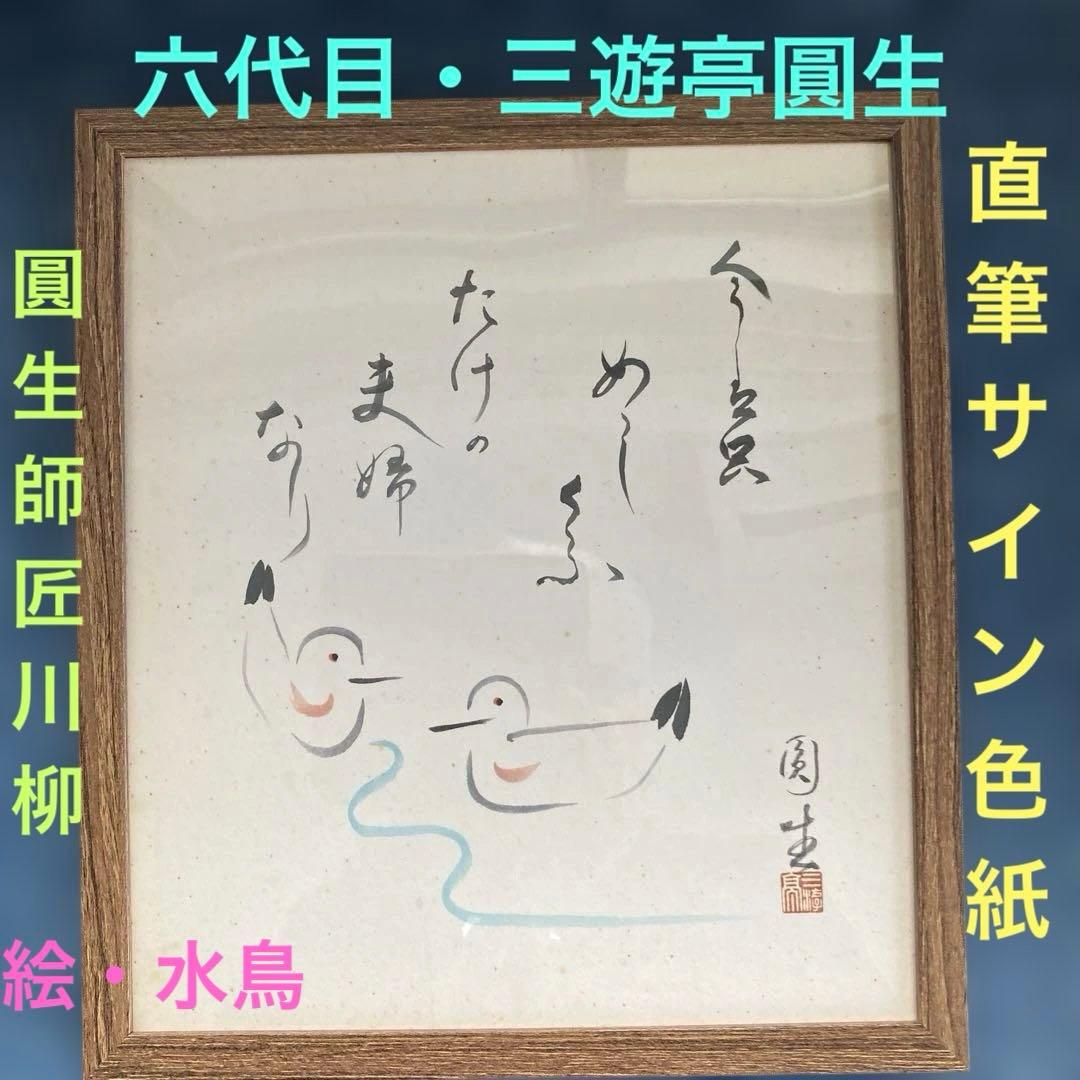 六代目・三遊亭圓生
直筆サイン色紙
今は只
めし
くふ
たけの
夫婦
なり
圓生
圓生師匠川柳
絵・水鳥